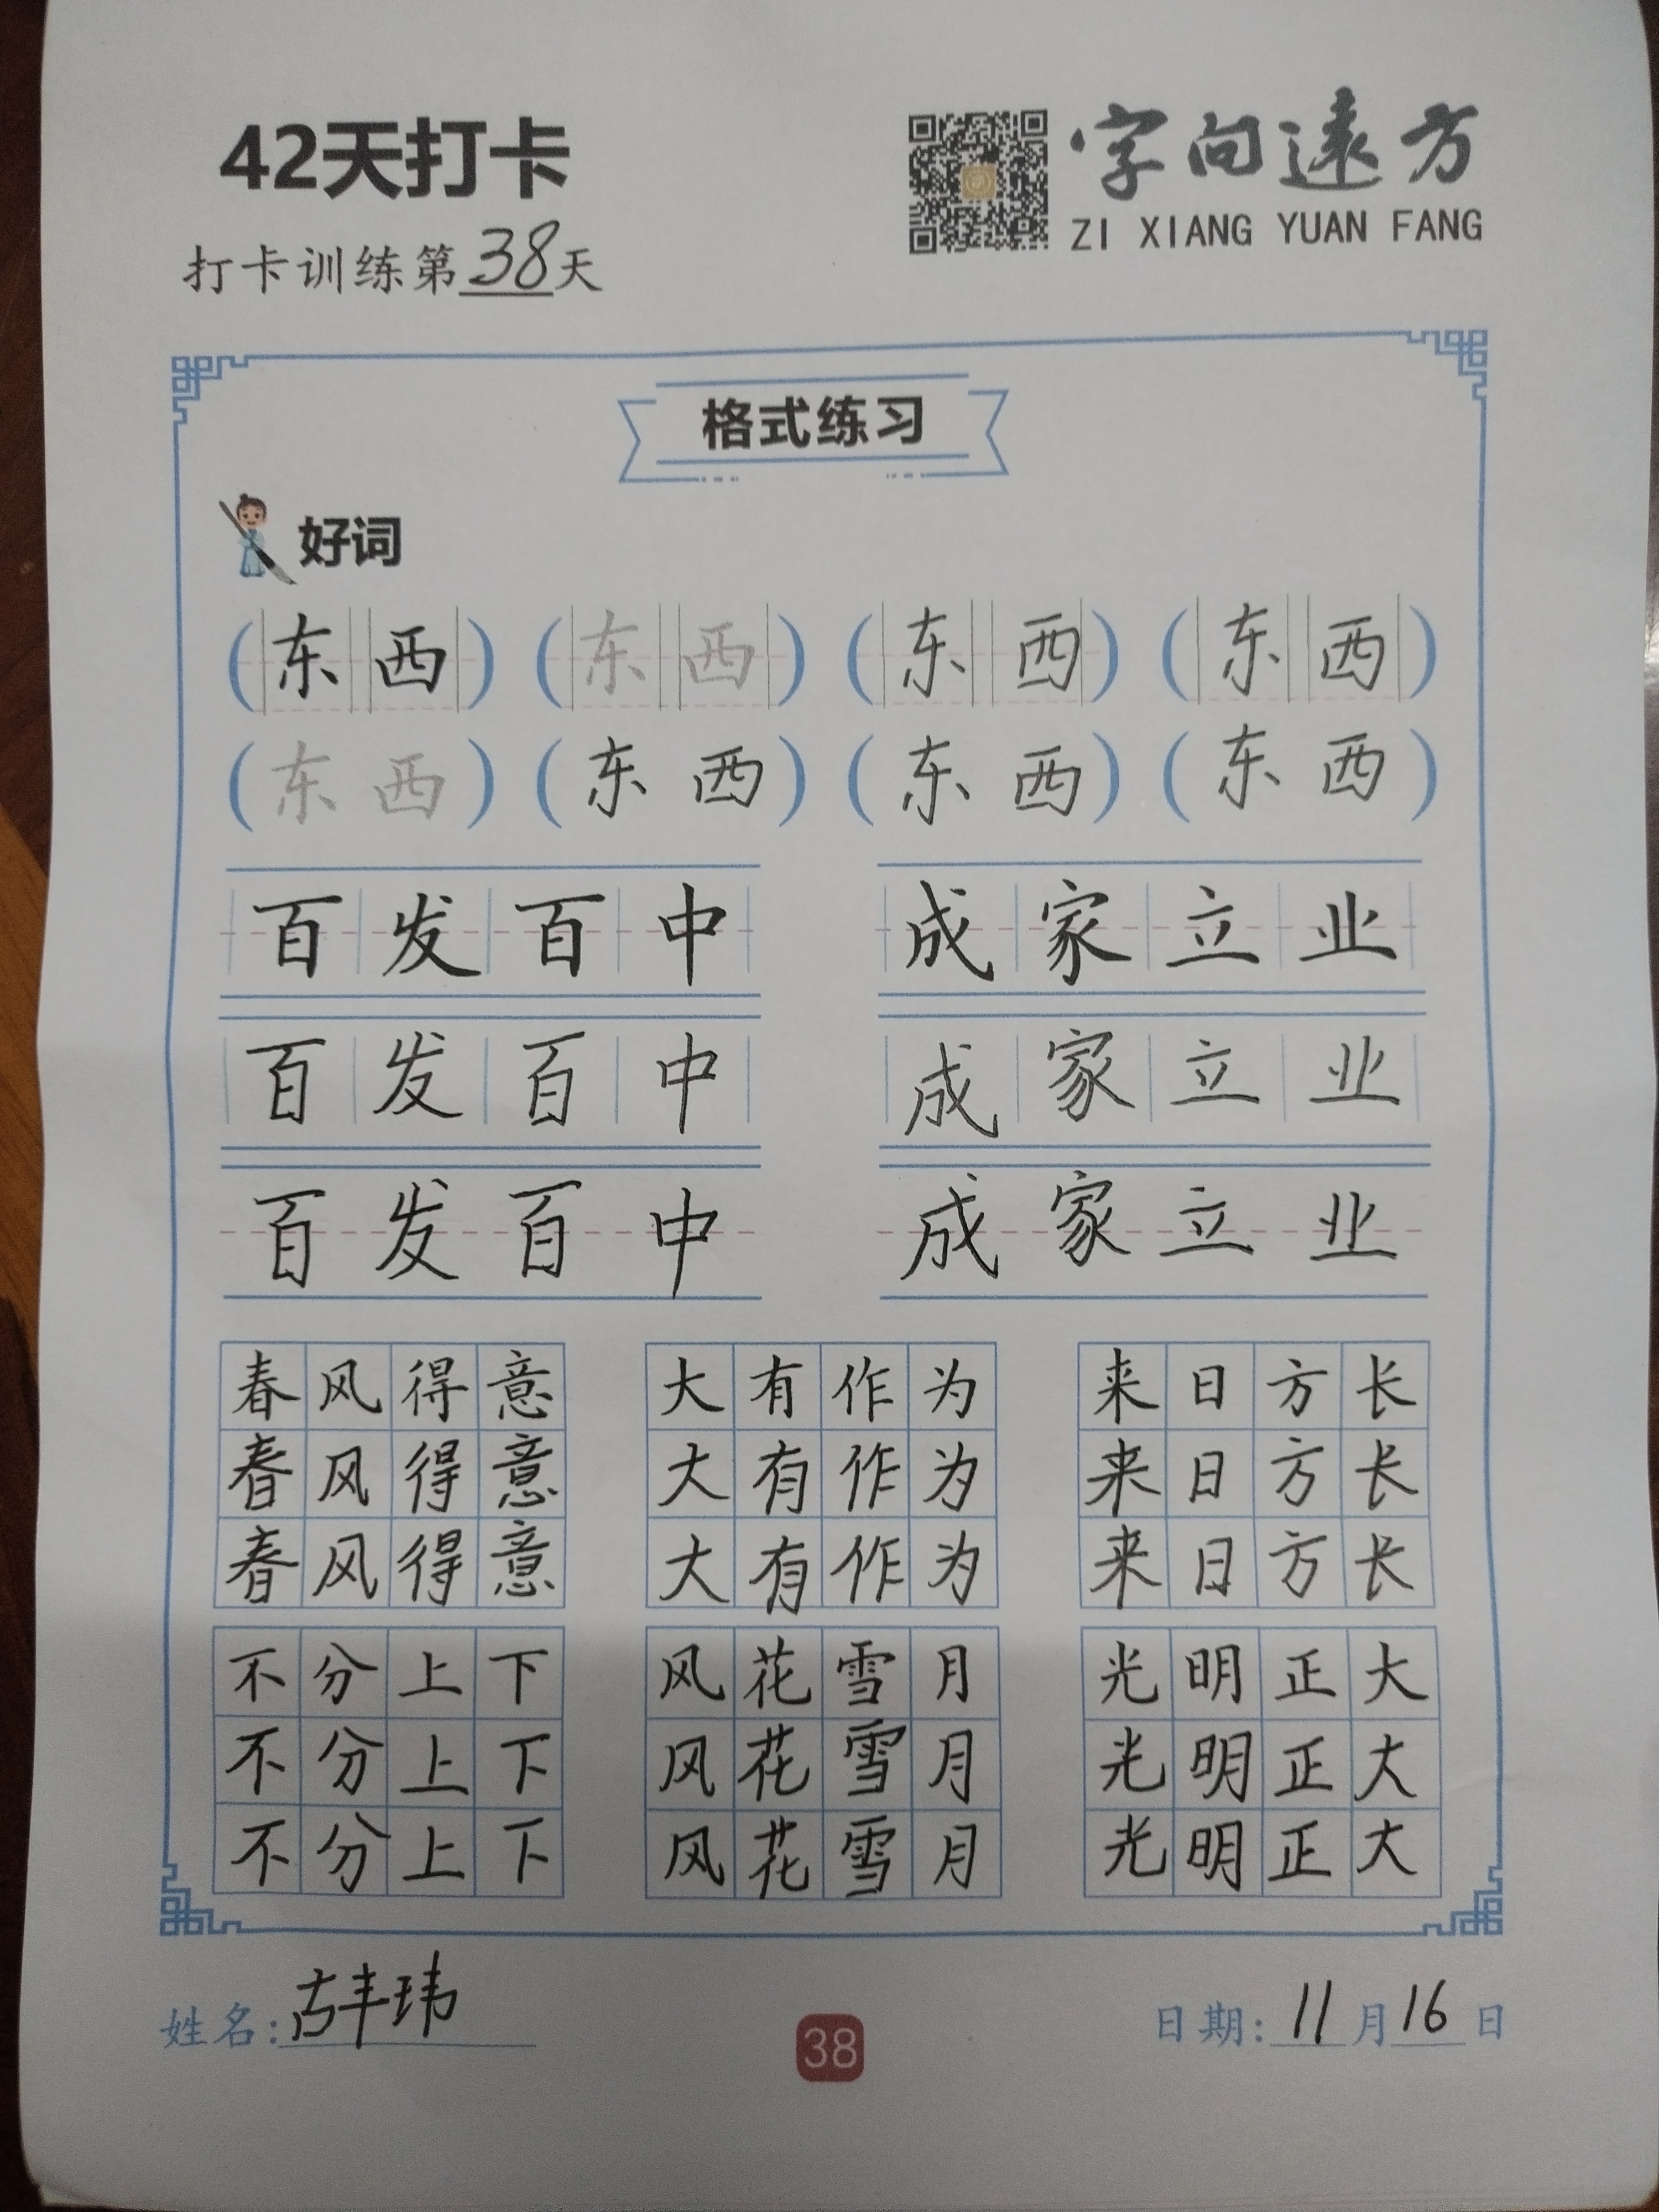 42天打卡
字向远方
ZI XIANG YUAN FANG
打卡训练第38天
格式练习
好词
(东西) (东西) (东西) (东西)
(东西) (东西) (东西) (东西)
百发百中 成家立业
百发百中 成家立业
百发百中 成家立业
春风得意 大有作为 来日方长
春风得意 大有作为 来日方长
春风得意 大有作为 来日方长
不分上下 风花雪月 光明正大
不分上下 风花雪月 光明正大
不分上下 风花雪月 光明正大
姓名: 丰玮
38
日期: 11月16日